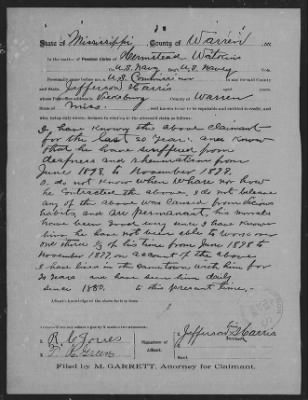 State of Mississippi County of Warren, ss:
In the matter of Pension Claim of Armstead Watkins
U.S. Navy U.S. Navy
Personally came before me a U.S. Commissioner in and for said County
and State, Jefferson Harris
whose Post-office address is Vicksburg County of Warren
Miss.
I have known the above claimant
for the last 20 years and know
that he have suffered from
deafness and rheumatism from
June 1878 to November 1878
I do not know when where nor how
he contracted the above, I do not believe
any of the above was caused from vicious
habits and are permanent, his morals
have been good ever since I have known
him, he have not been able to work over
one third ⅓ of his time from June 1878 to
November 1877 on account of the above
I have lives in the same town with him for
20 years and have seen him daily
since 1880. to this present time.
R C Jones
Signature of Affiant.
Jefferson Harris
Filed by M. GARRETT, Attorney for Claimant.